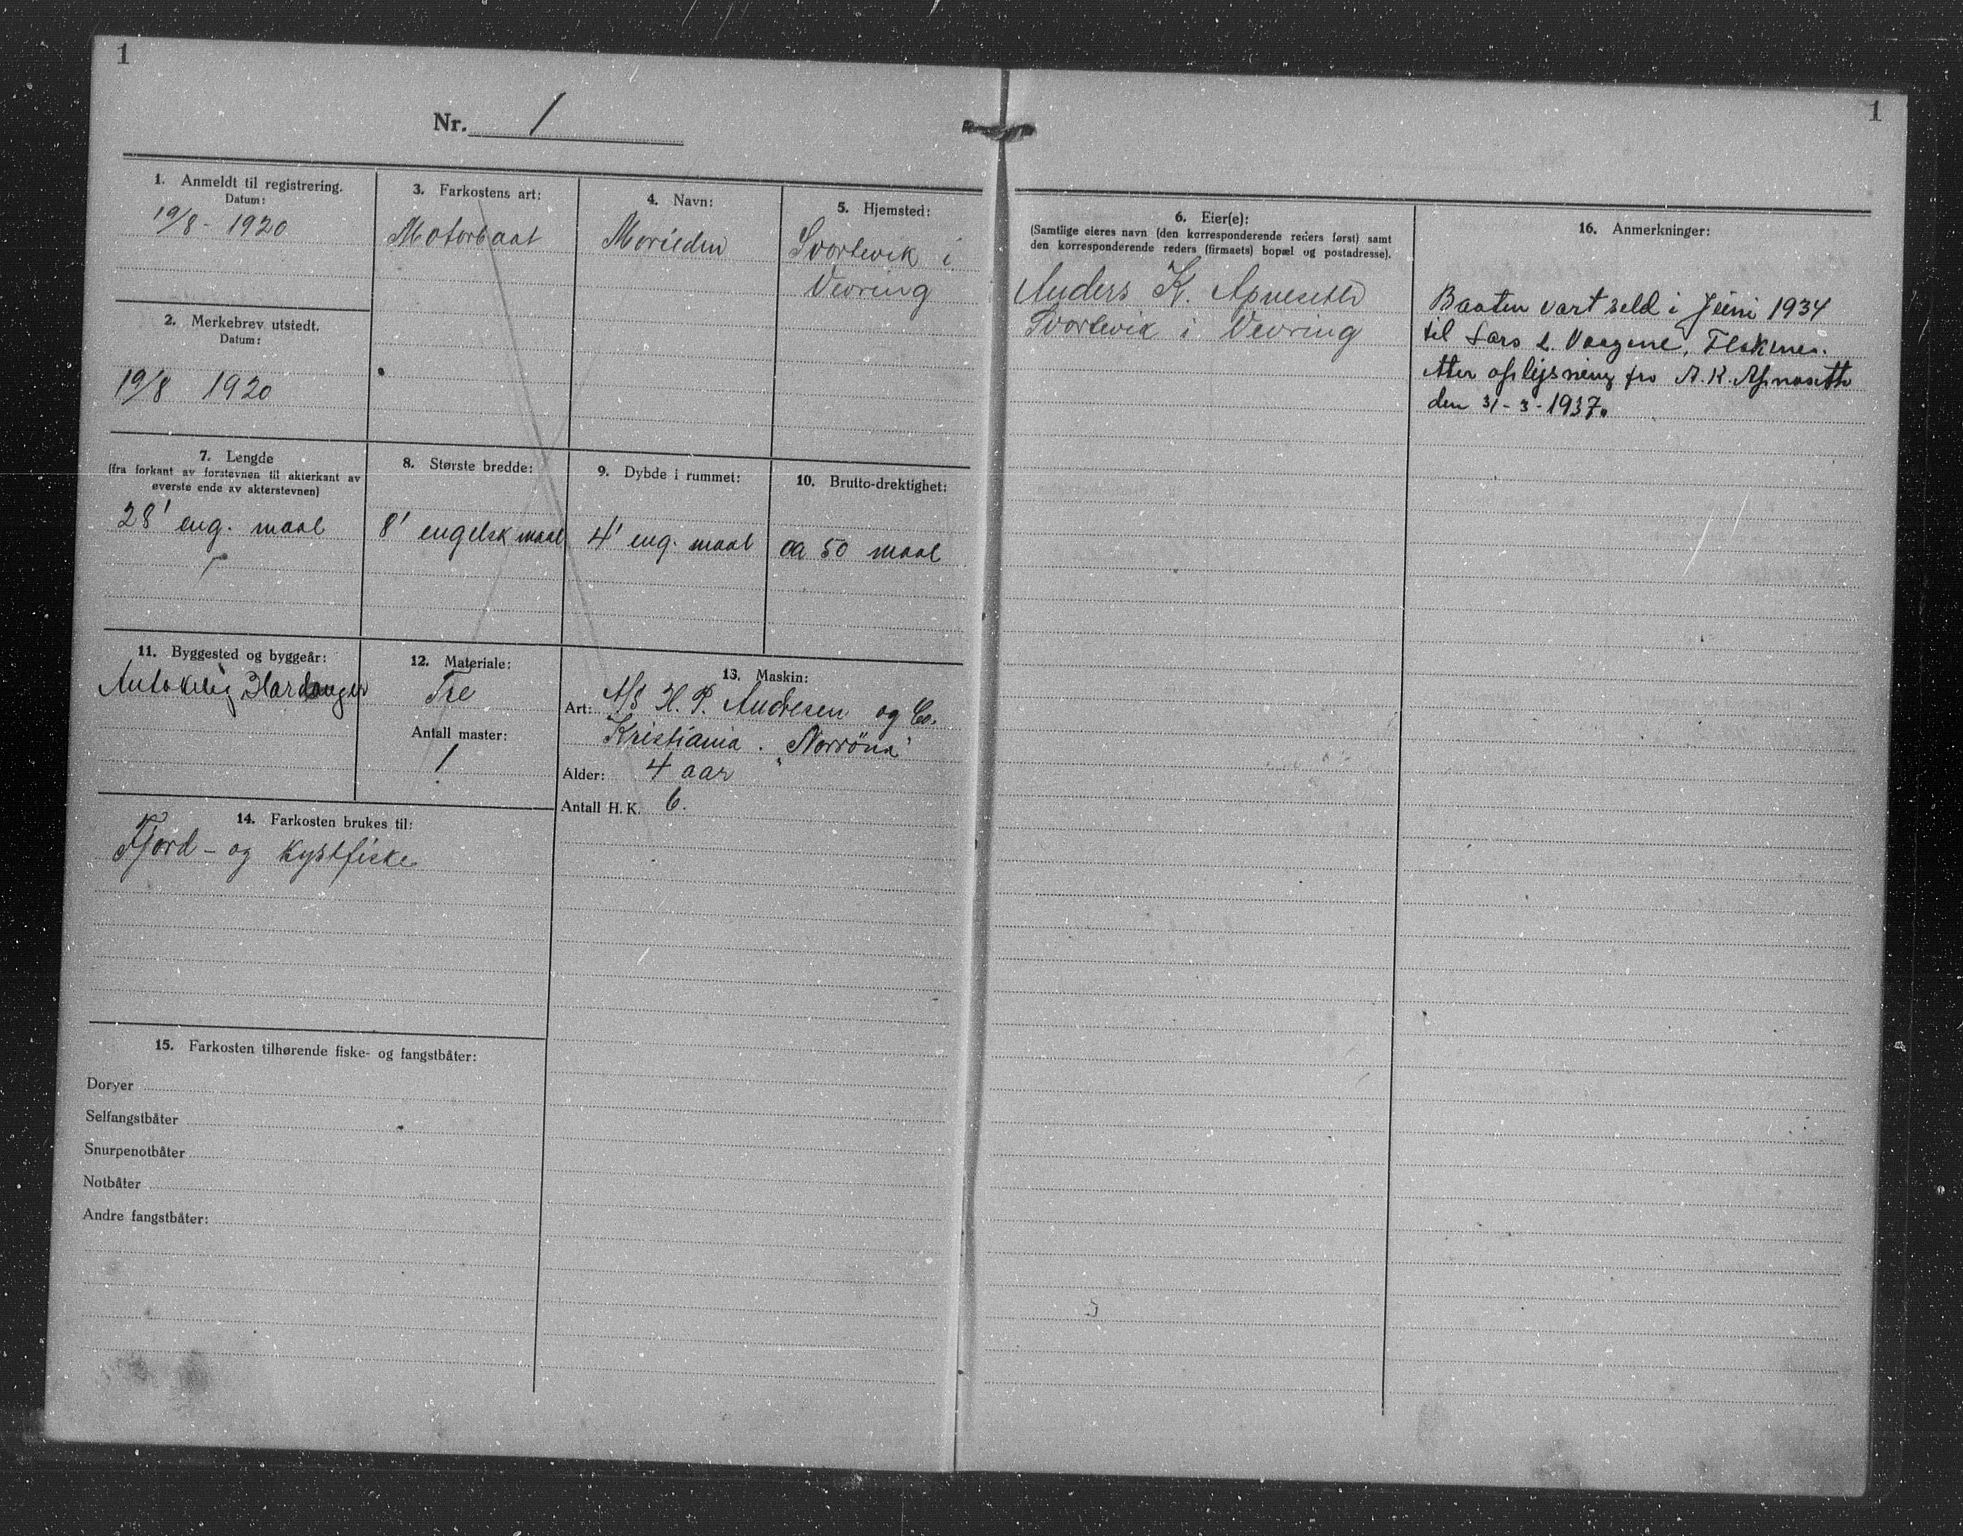 1
Nr. 1
1. Anmeldt til registrering.
Datum:
19/8 - 1920
2. Merkebrev utstedt.
Datum:
19/8 1920
3. Farkostens art:
Motorbaat
4. Navn:
5. Hjemsted:
Svortevik i
Vevring
7. Lengde
(fra forkant av forstevnen til akterkant av
øverste ende av akterstevnen)
28' eng. maal
8. Største bredde:
8' engelsk maal
9. Dybde i rummet:
4' eng. maal
10. Brutto-drektighet:
ca 50 maal
11. Byggested og byggeår:
Hardanger
12. Materiale:
Tre
Antall master:
1
13. Maskin:
Art: A/S H. P. Andresen og Co.
Kristiania. "Norrøna"
Alder: 4 aar
Antall H. K. 6.
14. Farkosten brukes til:
Fjord- og Kystfiske
15. Farkosten tilhørende fiske- og fangstbåter:
Doryer
Selfangstbåter
Snurpenotbåter
Notbåter
Andre fangstbåter:
1
6. Eier(e):
(Samtlige eieres navn (den korresponderende reders først) samt
den korresponderende reders (firmaets) bopæl og postadresse).
Anders K. Apneseth
Svortevik i Vevring
16. Anmerkninger:
Baaten vart seld i Juni 1934
til Lars L. Vaagene,
etter oplysning fra A. K. Apneseth
den 31-3-1937.